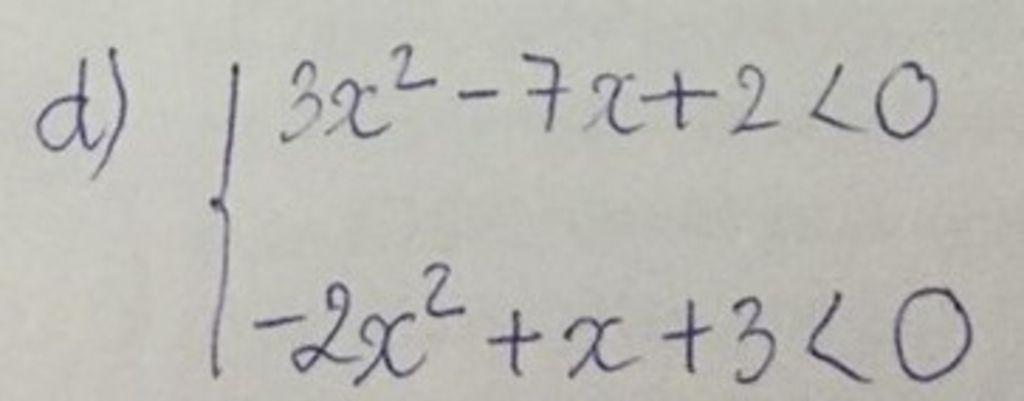 d) { 3x² - 7x + 2 < 0
-2x² + x + 3 < 0